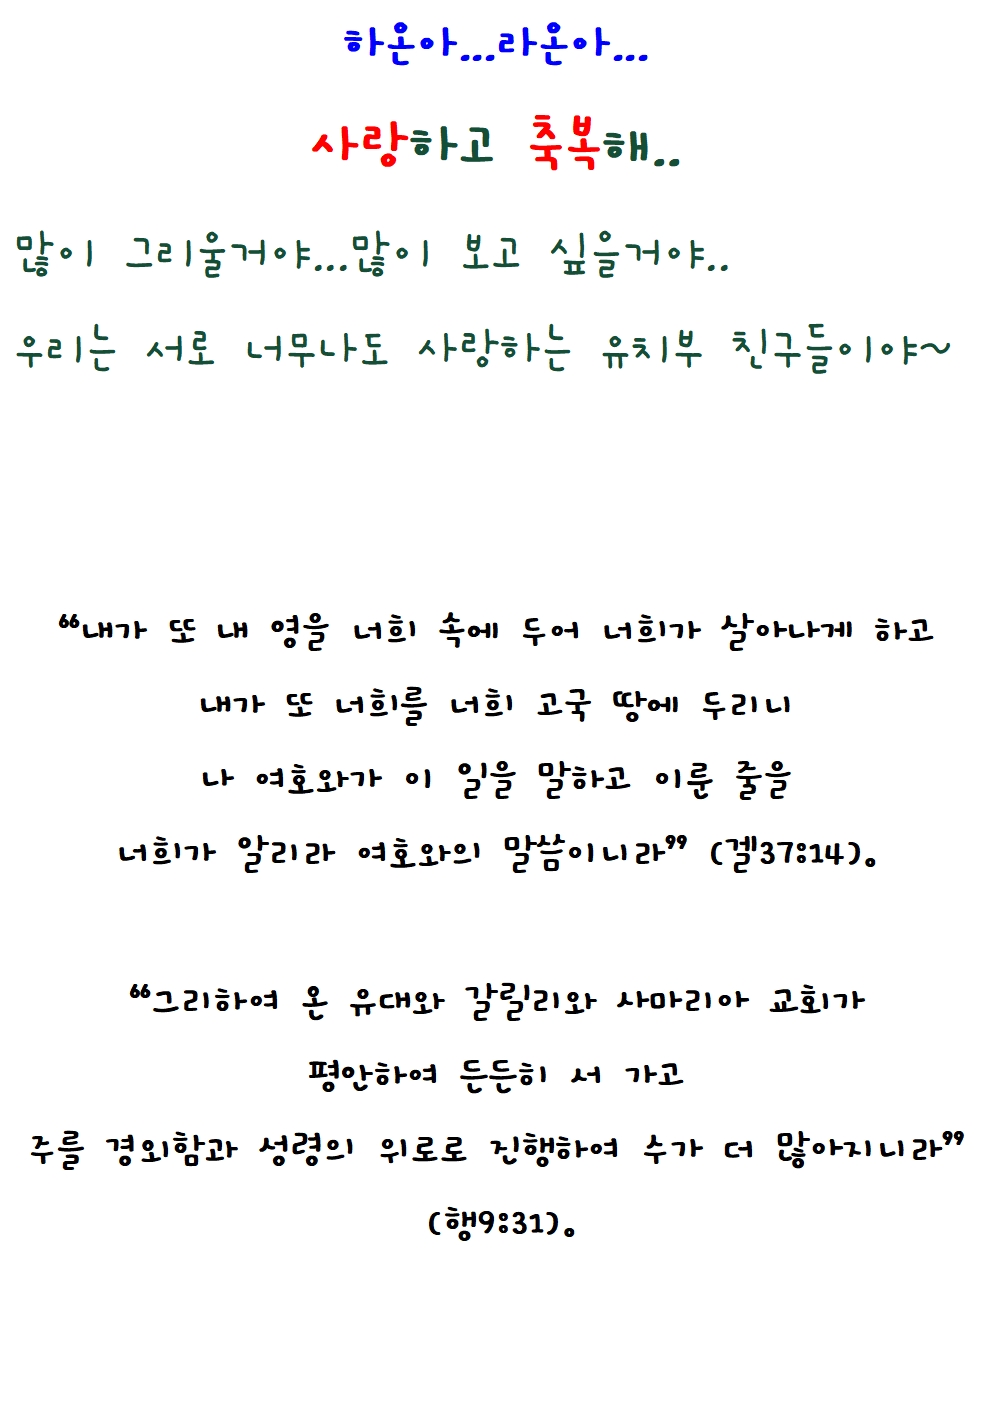 하온아...라온아...
사랑하고 축복해..
많이 그리울거야...많이 보고 싶을거야..
우리는 서로 너무나도 사랑하는 유치부 친구들이야~
“내가 또 내 영을 너희 속에 두어 너희가 살아나게 하고
내가 또 너희를 너희 고국 땅에 두리니
나 여호와가 이 일을 말하고 이룬 줄을
너희가 알리라 여호와의 말씀이니라” (겔37:14).
“그리하여 온 유대와 갈릴리와 사마리아 교회가
평안하여 든든히 서 가고
주를 경외함과 성령의 위로로 진행하여 수가 더 많아지니라”
(행9:31).